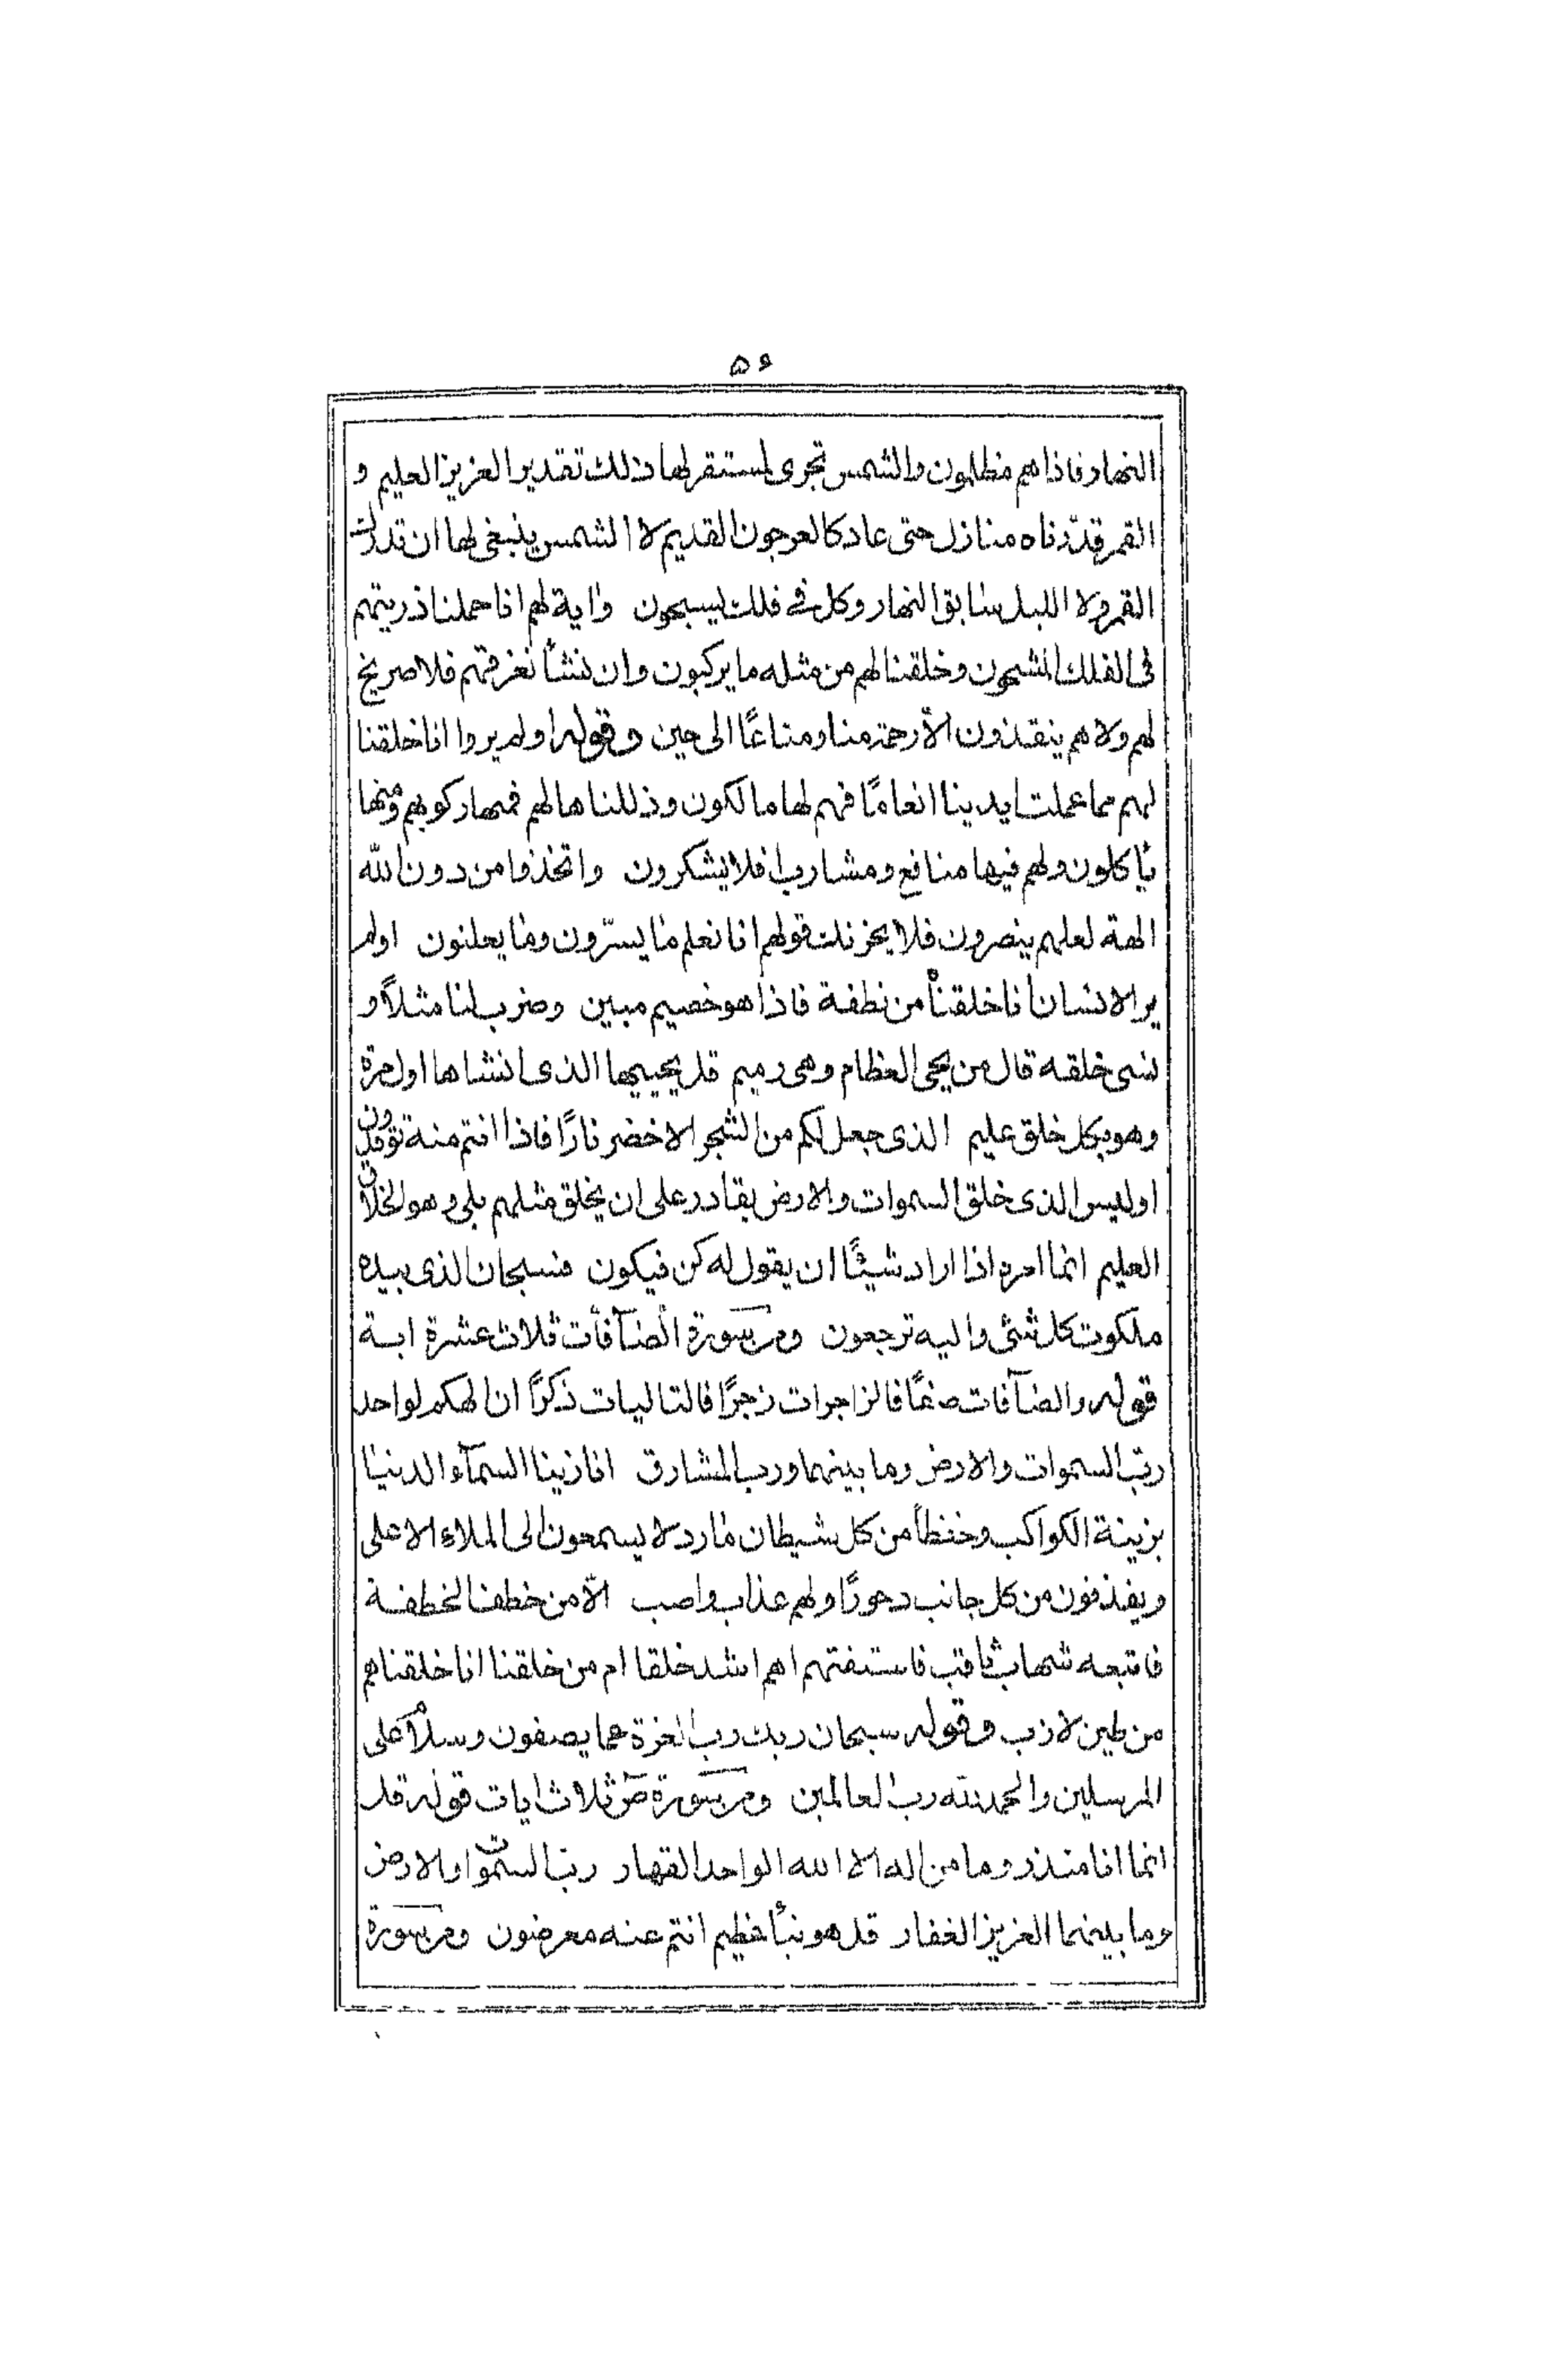 ٥٩
النهار فاذا هم مظلمون والشمس تجرى لمستقر لها ذلك تقدير العزيز العليم و
القمر قدّرناه منازل حتى عاد كالعرجون القديم لا الشمس ينبغى لها ان تدرك
القمر ولا الليل سابق النهار وكل فى فلك يسبحون واية لهم انا حملنا ذريتهم
فى الفلك المشحون وخلقنا لهم من مثله ما يركبون وان نشأ نغرقهم فلا صريخ
لهم ولا هم ينقذون الّا رحمة منا ومتاعًا الى حين وقوله اولم يروا انا خلقنا
لهم مما عملت ايدينا انعامًا فهم لها مالكون وذللناها لهم فمنها ركوبهم ومنها
يأكلون ولهم فيها منافع ومشارب افلا يشكرون واتخذوا من دون الله
الهة لعلهم ينصرون فلا يحزنك قولهم انا نعلم ما يسرّون وما يعلنون اولم
ير الانسان انا خلقناه من نطفة فاذا هو خصيم مبين وضرب لنا مثلًا و
نسى خلقه قال من يحى العظام وهى رميم قل يحييها الذى انشاها اول مرة
وهو بكل خلق عليم الذى جعل لكم من الشجر الاخضر نارًا فاذا انتم منه توقدون
اوليس الذى خلق السموات والارض بقادر على ان يخلق مثلهم بلى وهو الخلاق
العليم انما امره اذا اراد شيئًا ان يقول له كن فيكون فسبحان الذى بيده
ملكوت كل شئ واليه ترجعون ومن سورة الصآفات ثلاث عشرة اية
قوله والصآفات صفًا فالزاجرات زجرًا فالتاليات ذكرًا ان الهكم لواحد
ربّ السموات والارض وما بينهما ورب المشارق انا زينا السمآء الدنيا
بزينة الكواكب وحفظًا من كل شيطان مارد لا يسمعون الى الملاء الاعلى
ويقذفون من كل جانب دحورًا ولهم عذاب واصب الّا من خطف الخطفة
فاتبعه شهاب ثاقب فاستفتهم اهم اشد خلقا ام من خلقنا انا خلقناهم
من طين لازب وقوله سبحان ربك رب العزة عما يصفون وسلام على
المرسلين والحمد لله رب العالمين ومن سورة ص ثلاث ايات قوله قل
انما انا منذر وما من اله الا الله الواحد القهار ربّ السموات والارض
وما بينهما العزيز الغفار قل هو نبأ عظيم انتم عنه معرضون ومن سورة